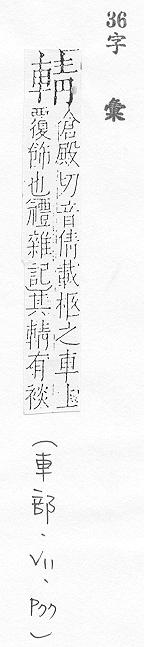 36
字彙
輤倉殿切音倩載柩之車上
覆飾也禮雜記其輤有裧
(車部.VII.P77)